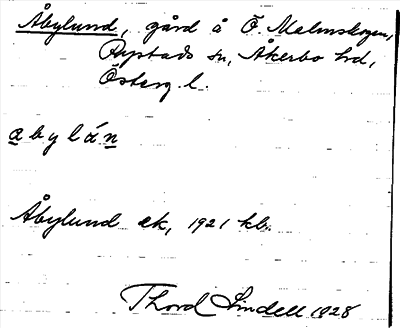 Åbylund, gård å Ö. Malmskogen,
Rystads sn, Åkerbo hd,
Österg. l.
a b y l á n
Åbylund ek, 1921 kbr.
Thord Lindell 1928